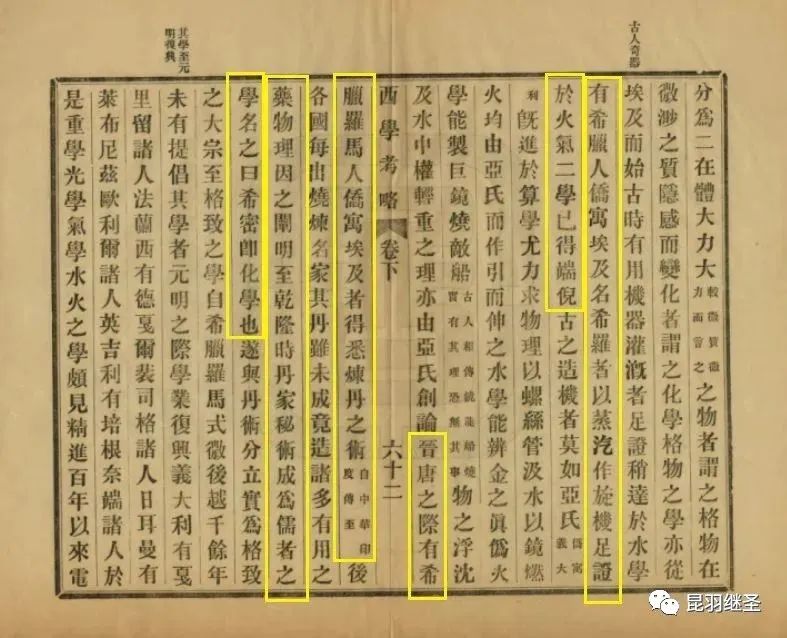 古人奇器
分爲二在體大力大較微質微力而言之之物者謂之格物在
微渺之質隱感而變化者謂之化學格物之學亦從
埃及而始古時有用機器灌溉者足證稍達於水學
有希臘人僑寓埃及名希羅者以蒸汽作旋機足證
於火氣二學已得端倪古之造機者莫如亞氏僑寓義大
利旣進於算學尤力求物理以螺絲管汲水以鏡燃
火均由亞氏而作引而伸之水學能辨金之眞僞火
學能製巨鏡燒敵船古人相傳船燒實有其理恐無其事物之浮沈
及水中權輕重之理亦由亞氏創論晉唐之際有希
西學考略 卷下 六十二
臘羅馬人僑寓埃及者得悉煉丹之術自中華印度傳至後
各國每出燒煉名家其丹雖未成竟造諸多有用之
藥物理因之闡明至乾隆時丹家秘術成爲儒者之
學名之曰希密卽化學也遂與丹術分立實爲格致
其學至元
明復興
之大宗至格致之學自希臘羅馬式微後越千餘年
未有提倡其學者元明之際學業復興義大利有戛
里留諸人法蘭西有德戛爾裴司格諸人日耳曼有
萊布尼茲歐利爾諸人英吉利有培根奈端諸人於
是重學光學氣學水火之學頗見精進百年以來電
昆羽继圣